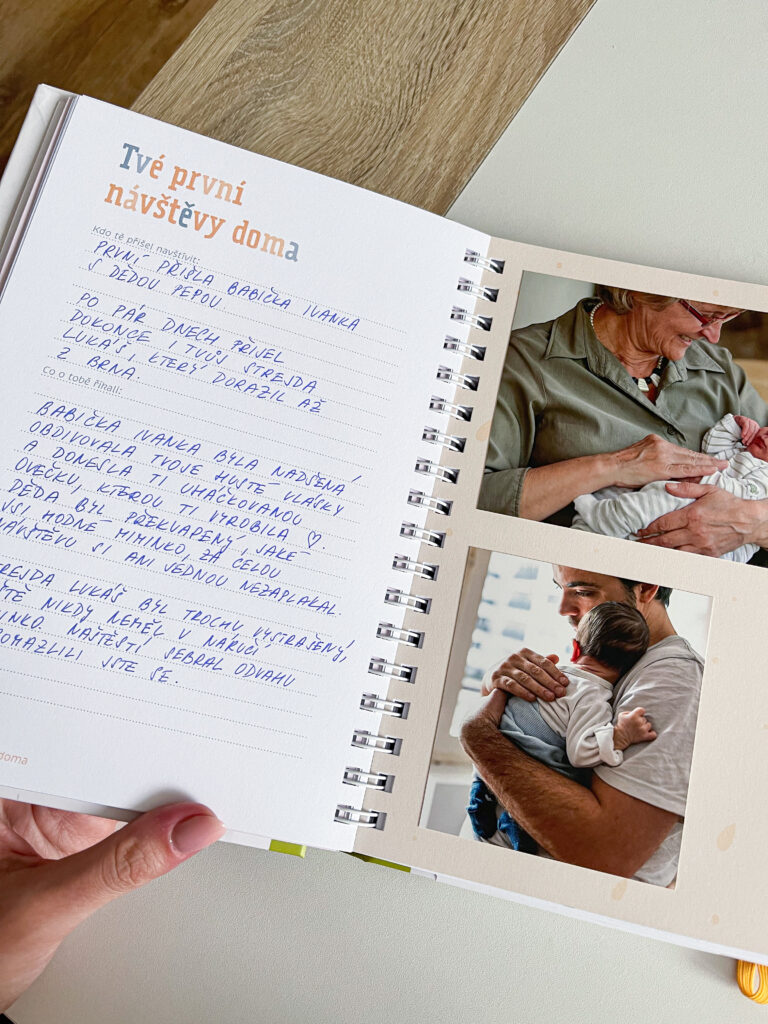 Tvé první
návštěvy doma
Kdo tě přišel navštívit:
PRVNÍ PŘIŠLA BABIČKA IVANKA
S DĚDOU PEPOU
PO PÁR DNECH PŘIJEL
DOKONCE I TVŮJ STREJDA
LUKÁŠ, KTERÝ DORAZIL AŽ
Z BRNA
Co o tobě říkali:
BABIČKA IVANKA BYLA NADŠENÁ,
OBDIVOVALA TVOJE HUSTÉ VLÁSKY
A DONESLA TI UHÁČKOVANOU
OVEČKU, KTEROU TI VYROBILA ♡.
DĚDA BYL PŘEKVAPENÝ, JAKÉ
JSI HODNÉ MIMINKO, ZA CELOU
NÁVŠTĚVU SI ANI JEDNOU NEZAPLAKAL.
STREJDA LUKÁŠ BYL TROCHU VYSTRAŠENÝ,
JEŠTĚ NIKDY NEMĚL V NÁRUČÍ
MIMINKO. NAŠTĚSTÍ SEBRAL ODVAHU
POMAZLILI JSTE SE.
doma